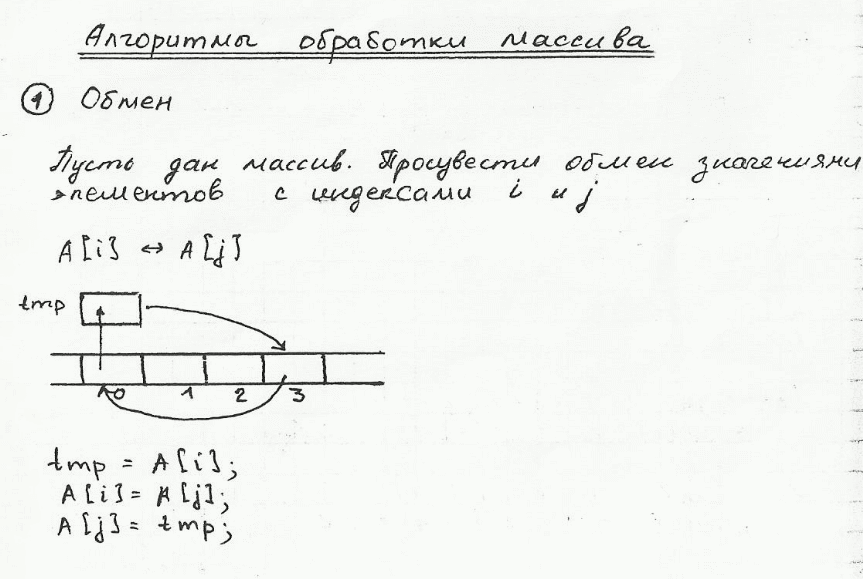 Алгоритмы обработки массива
1 Обмен
Пусть дан массив. Просувести обмен значениями
элементов с индексами i и j
A[i] ↔ A[j]
tmp
0 1 2 3
tmp = A[i];
A[i] = A[j];
A[j] = tmp;